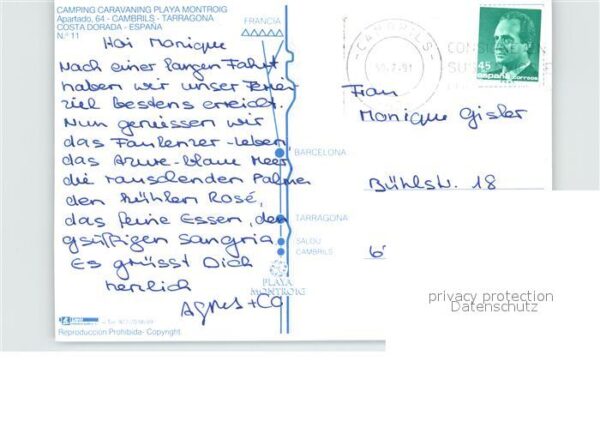 CAMPING CARAVANING PLAYA MONTROIG
Apartado, 64 - CAMBRILS - TARRAGONA
COSTA DORADA - ESPAÑA
N.º 11
FRANCIA
Hoi Monique
Nach einer langen Fahrt
haben wir unser Ferien
ziel bestens erreicht.
Nun geniessen wir
das Faulenzer-leben,
das Azur-blaue Meer
die rauschenden Palmen
den kühlen Rosé,
das feine Essen, den
gsüffigen Sangria.
Es grüsst Dich
herzlich
Agnes + Co
BARCELONA
TARRAGONA
SALOU
CAMBRILS
PLAYA
MONTROIG
Reproducción Prohibida - Copyright.
CAMBRILS
45
españa correos
Frau
Monique Gisler
Bühlstr. 18
6
privacy protection
Datenschutz